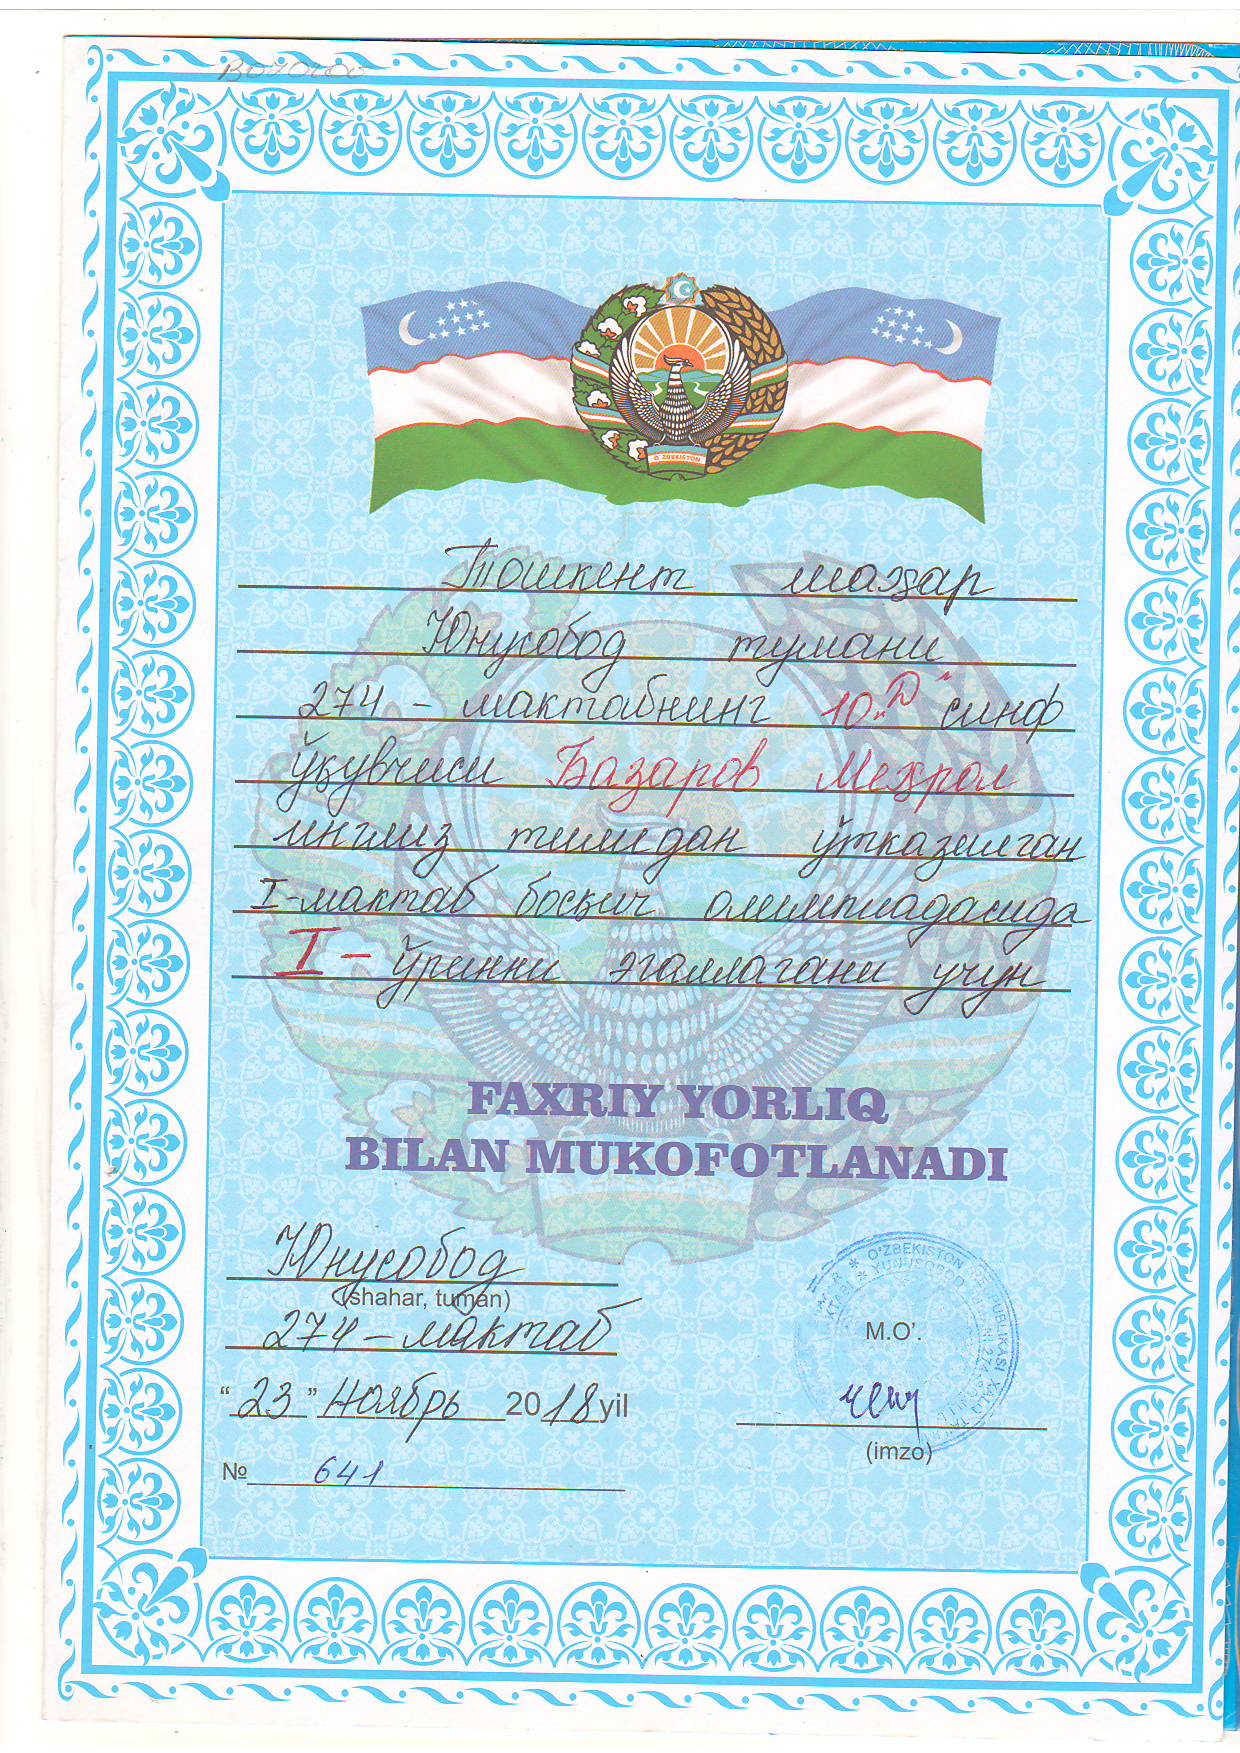 O'ZBEKISTON
Тошкент шаҳар
Юнусобод тумани
274 - мактабнинг 10 "Д" синф
ўқувчиси Базаров Меҳрол
инглиз тилидан ўтказилган
I-мактаб босқич олимпиадасида
I - ўринни эгаллагани учун
FAXRIY YORLIQ
BILAN MUKOFOTLANADI
Юнусобод
(shahar, tuman)
274 - мактаб
M.O'.
"23" Ноябрь 2018 yil
(imzo)
№ 641
O'ZBEKISTON RESPUBLIKASI